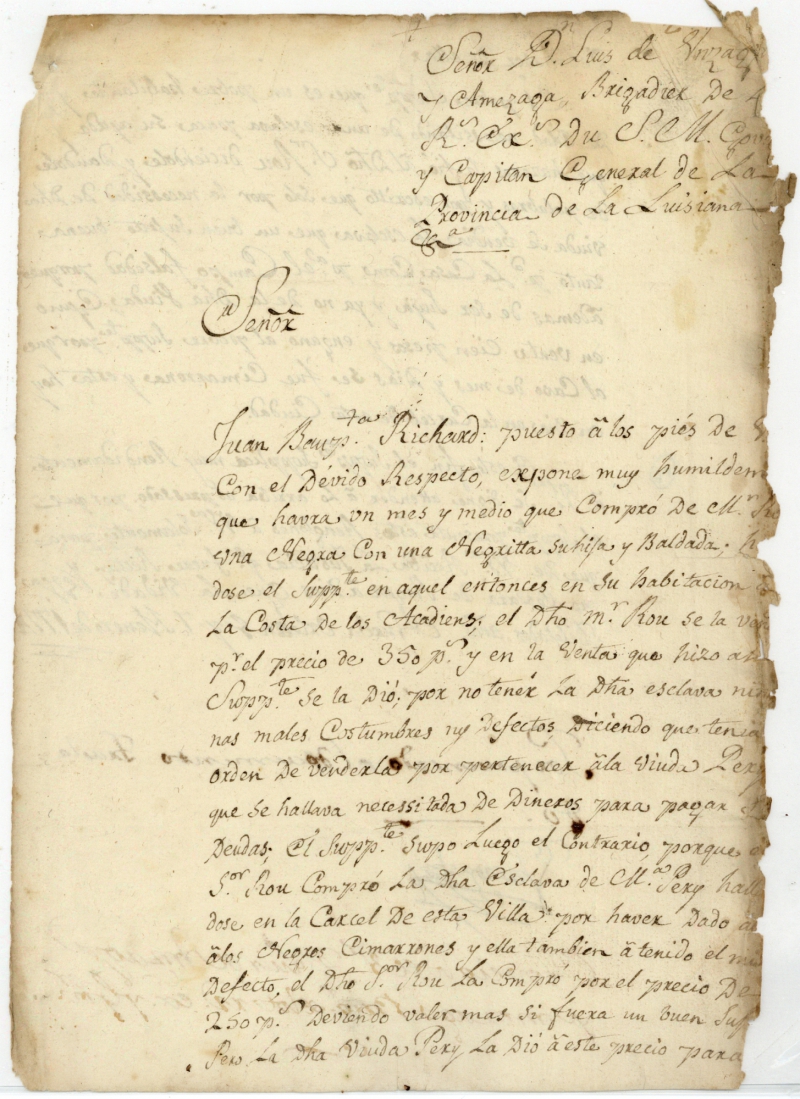 Señor Dn. Luis de Vnzag
y Amezaga, Brigadier De
Rs. Exs. Du S. M. Gov
y Capitan General de La
Provincia de La Luisiana
&a
Señor
Juan Baupta. Richard: puesto â los piés de V
Con el Dévido Respecto, expone muy humildem
que havra vn mes y medio que Compró De Mr. Ro
vna Negra Con una Negritta su hija y Baldada;
dose el Suppte. en aquel entonces en su habitacion
La Costa de los Acadiens; el Dho mr. Rou se la
pr. el precio de 350 ps. y en la Venta que hizo a
Suppte. se la Dió; por no tener La Dha esclava
nas males Costumbres ny Defectos, Diciendo que tenia
orden De venderla por pertenecer âla Viuda Pery
que se hallava necessitada De Dineros para pagar
Deudas; El Suppte. supo Luego el Contrario, porque
Sor. Rou Compró La Dha Esclava de Ma. Pery hall
dose en la Carcel De esta Villa por haver Dado
âlos Negros Cimarrones y ella tambien â tenido el
Defecto, el Dho Sor. Rou La Compró por el precio De
250 ps. Deviendo valer mas si fuera un buen Su
Pero La Dha Viuda Pery La Dió â este precio para